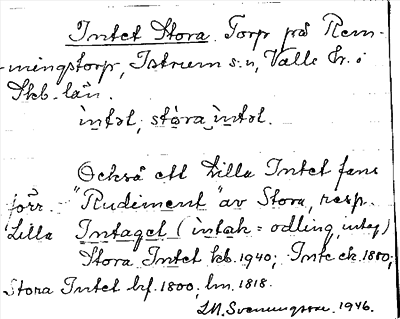 Intet Stora. Torp på Rem-
mingstorp, Istrum s:n, Valle hr. i
Skb. län.
ìntət, stòra ìntət.
Också ett Lilla Intet fans
förr. "Rudiment" av Stora, resp.
Lilla Intaget (ìntak = odling, inteq)
Stora Intet kb. 1940; Inte ek. 1880;
Stora Intet hf. 1800, lm. 1818.
Svenungsson. 1946.